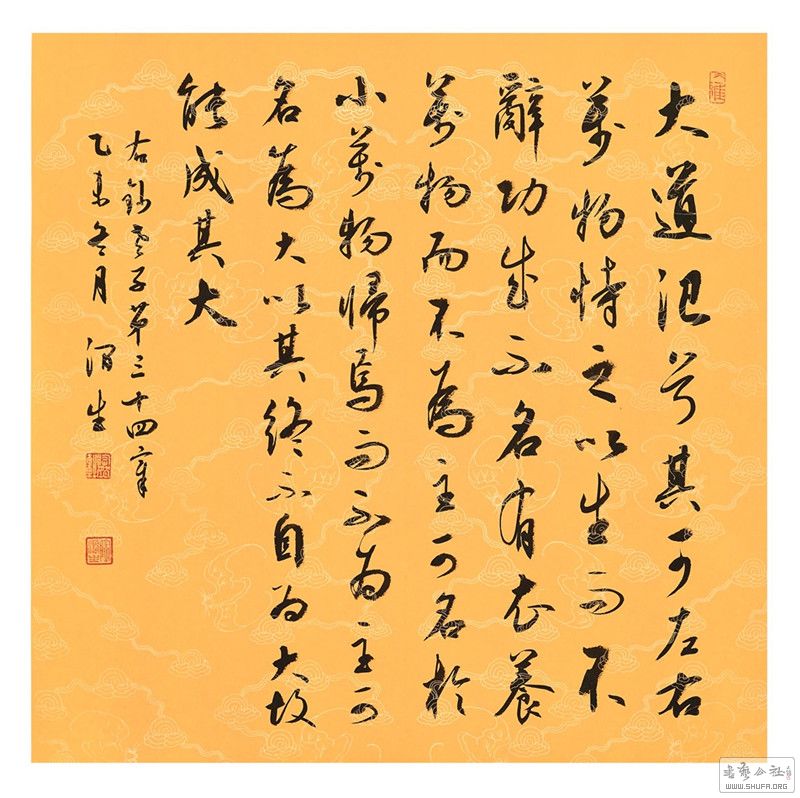 大道氾兮其可左右
萬物恃之以生而不
辭功成不名有衣養
萬物而不為主可名於
小萬物歸焉而不為主可
名為大以其終不自為大故
能成其大
右錄老子第三十四章
乙未冬月 渭生
书藝公社
WWW.SHUFA.ORG